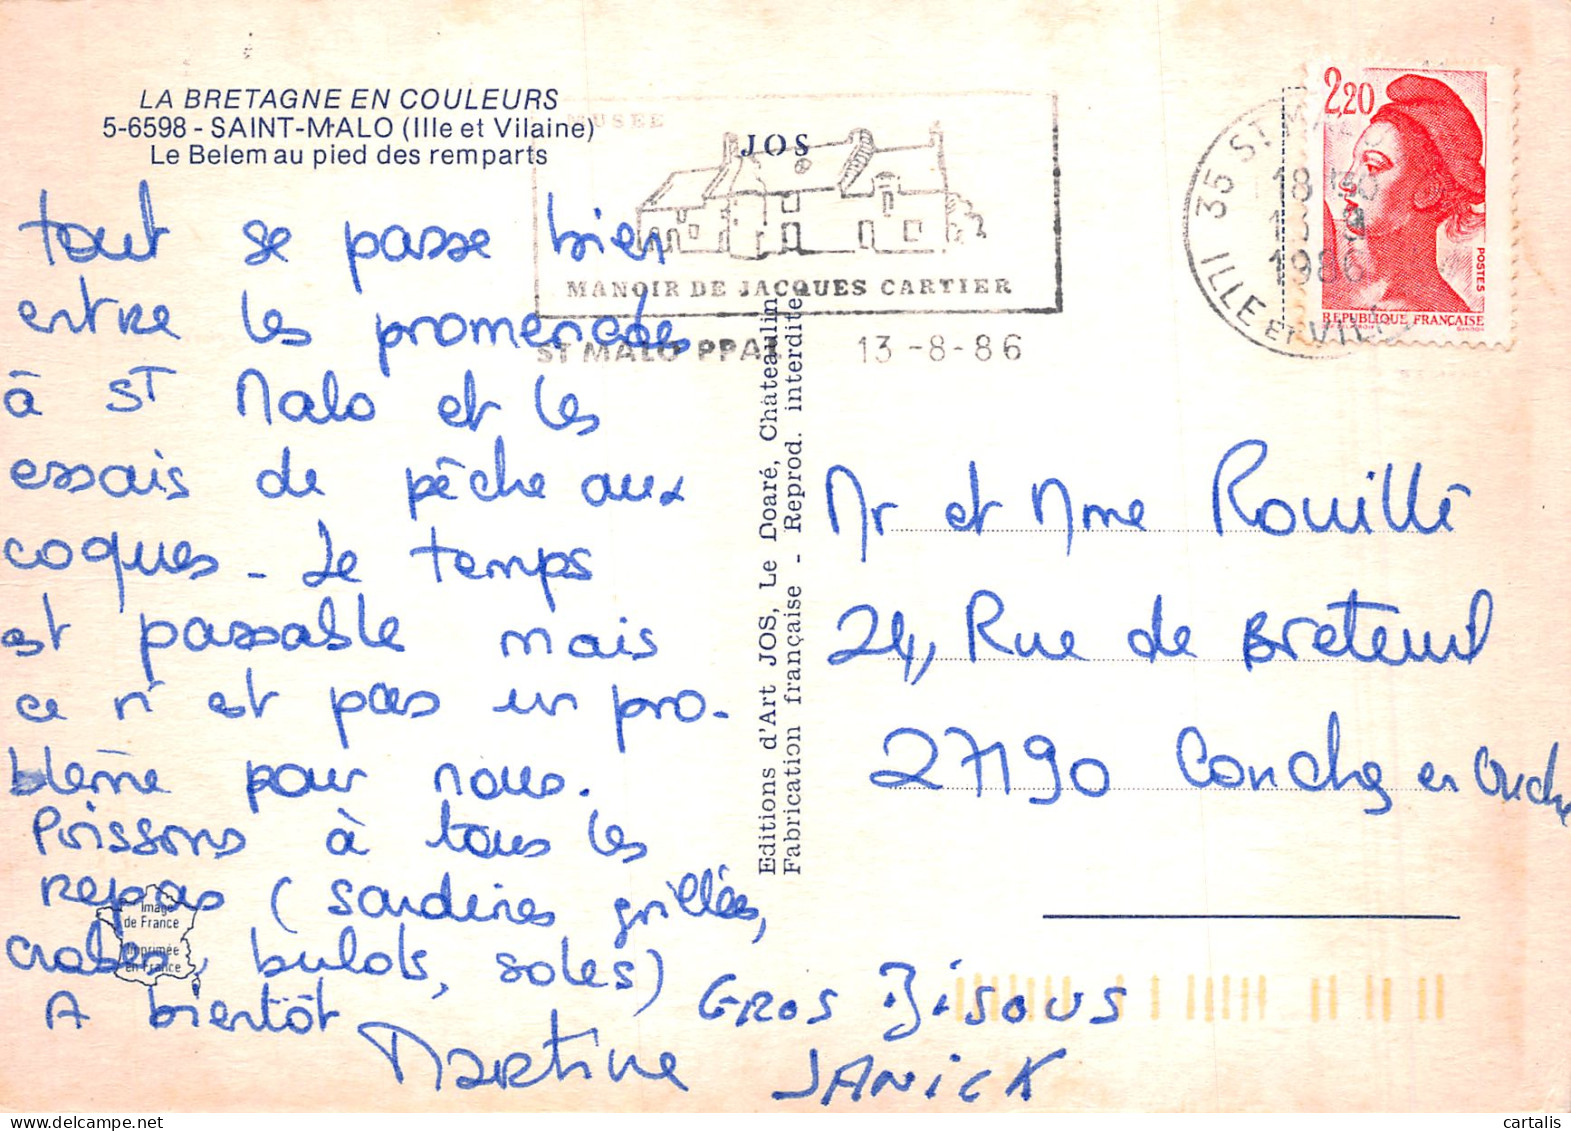 LA BRETAGNE EN COULEURS
5-6598 - SAINT-MALO (Ille et Vilaine)
Le Belem au pied des remparts
MUSEE
JOS
MANOIR DE JACQUES CARTIER
ST MALO PPAL 13-8-86
35 ST MALO
18 H
1986
ILLE ET VIL
2,20
POSTES
REPUBLIQUE FRANÇAISE
tout se passe bien
entre les promenades
à ST Malo et les
essais de pêche aux
coques - Le temps
est passable mais
ce n'est pas un pro-
blème pour nous.
Poissons à tous les
repas (sardines grillées,
crabes, bulots, soles)
A bientôt
Martine
GROS BISOUS
JANICK
Image
de France
Imprimée
en France
Editions d'Art JOS, Le Doaré, Chateaulin
Fabrication française - Reprod. interdite
Mr et Mme Rouillé
24, Rue de Breteuil
27190 Conches en Ouche
cartalis